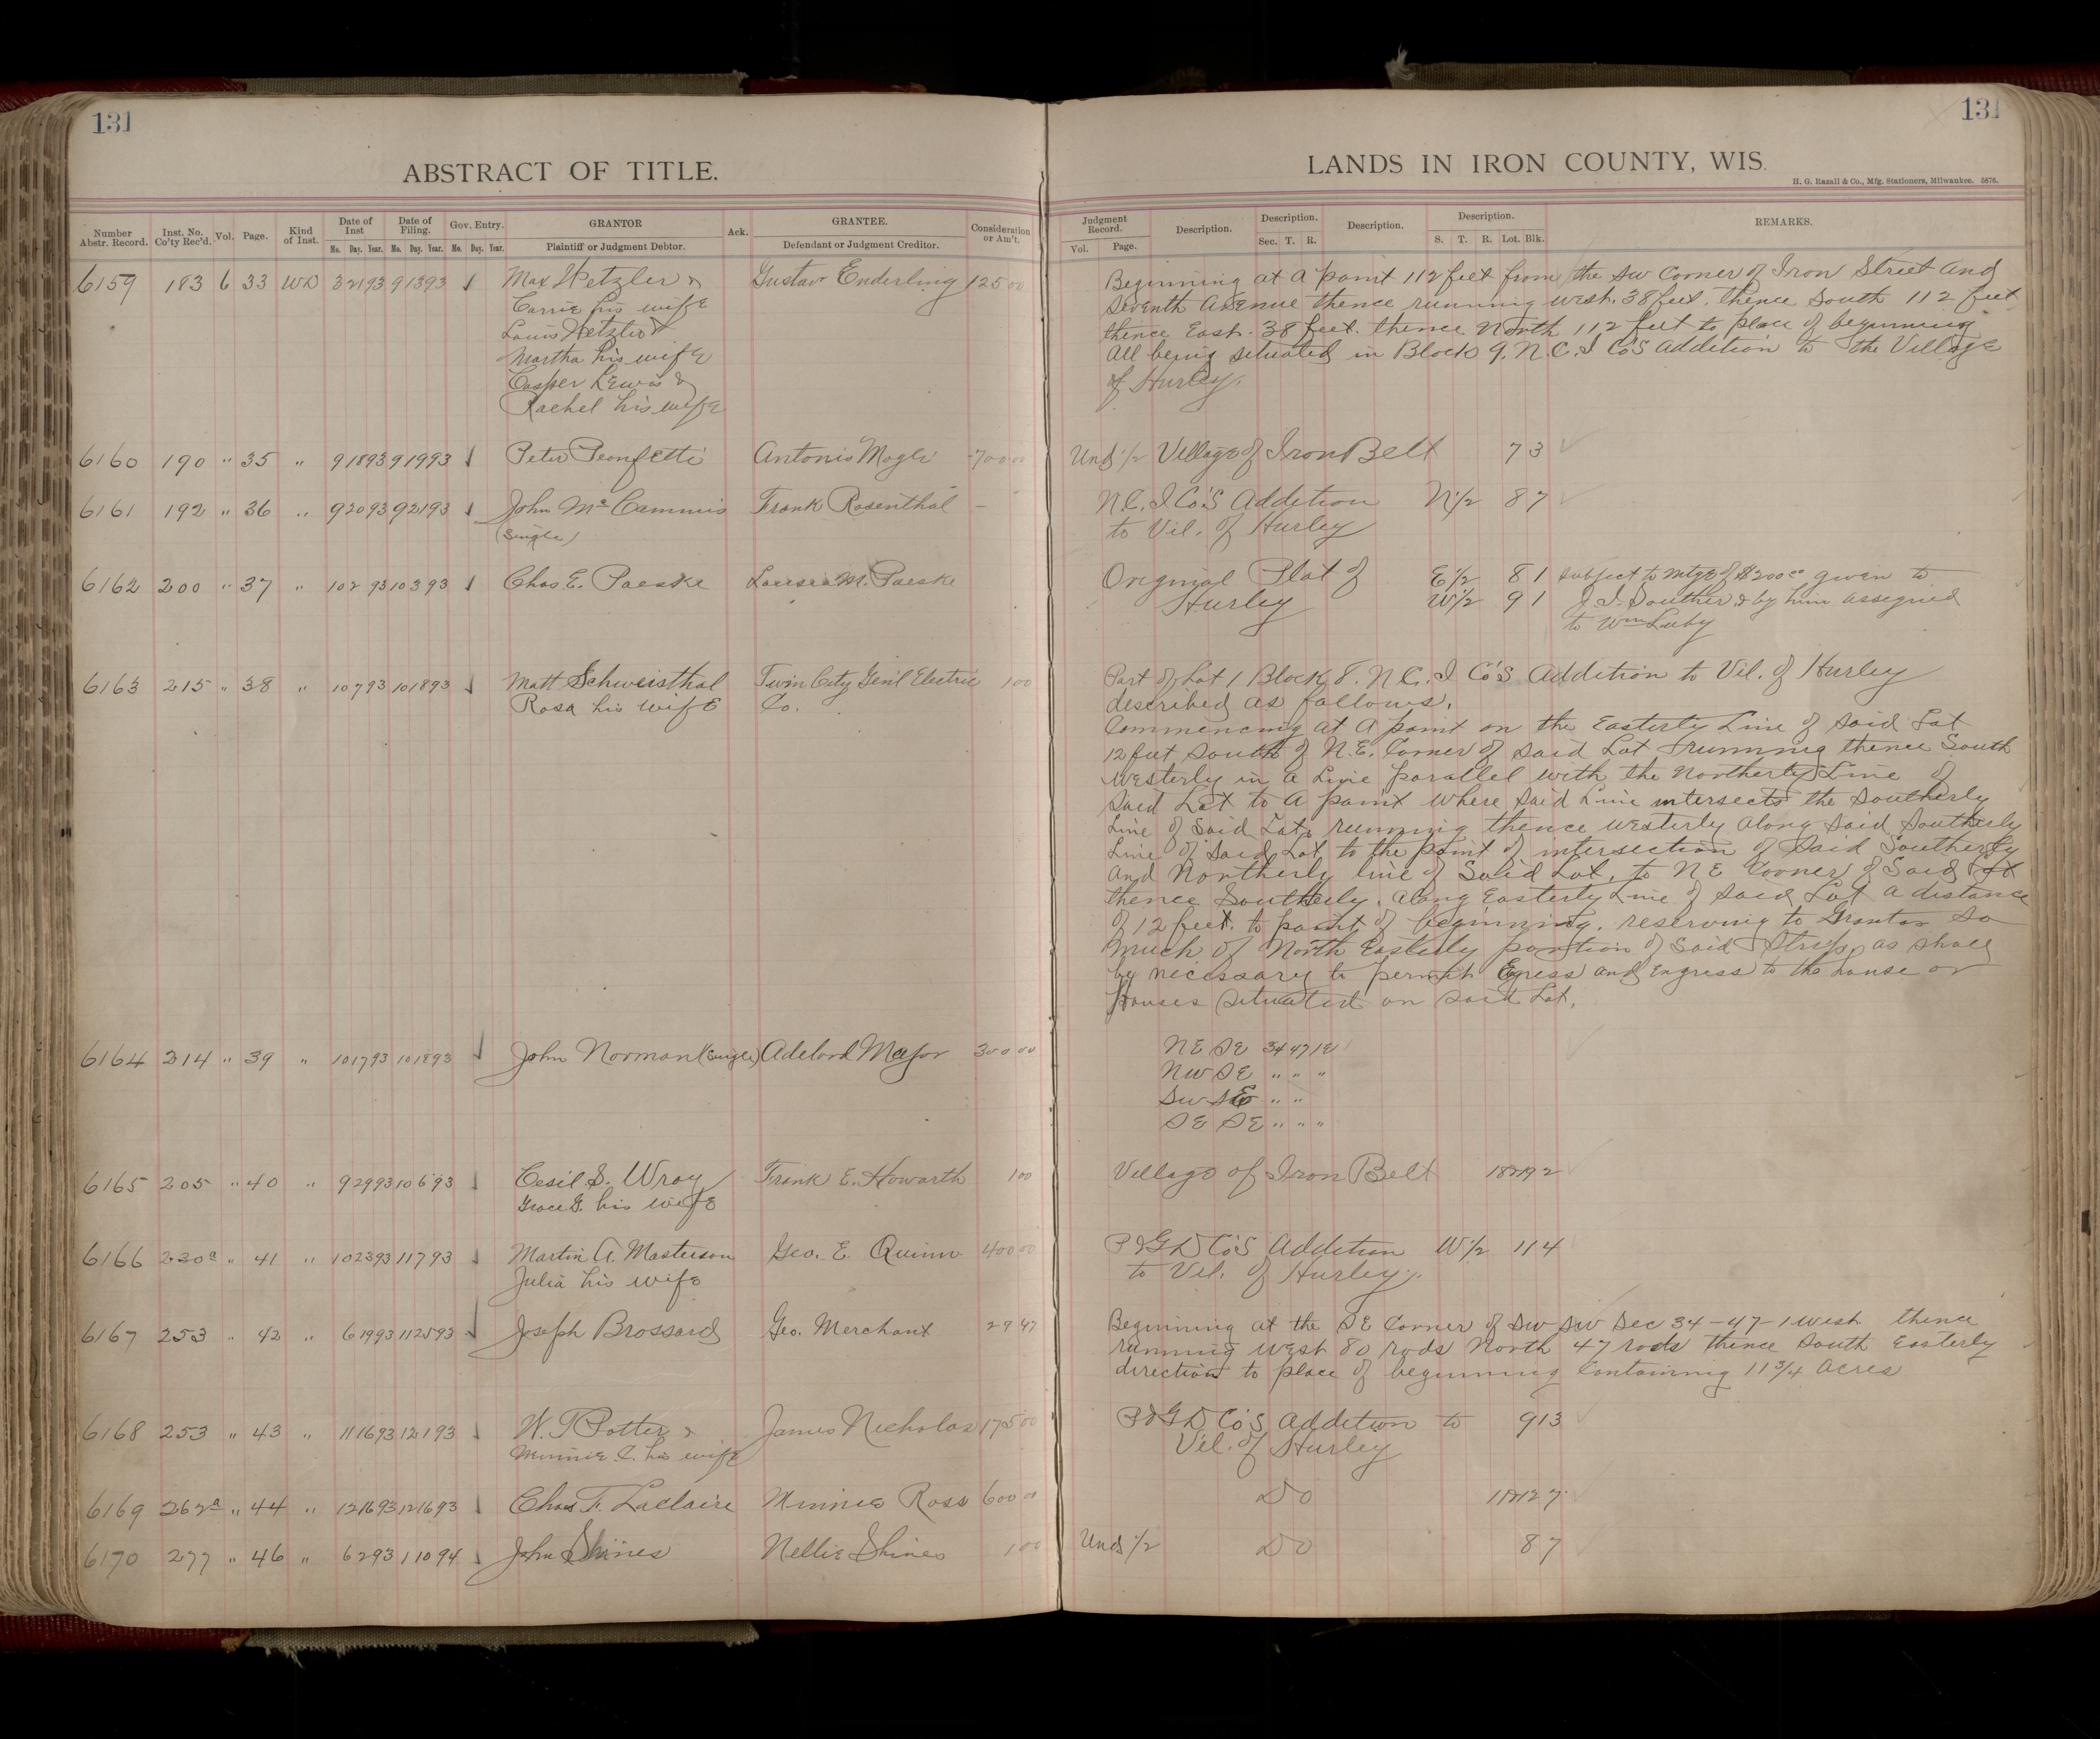 131
131
ABSTRACT OF TITLE.
LANDS IN IRON COUNTY, WIS.
H. G. Razall & Co., Mfg. Stationers, Milwaukee. 5876.
Number Abstr. Record. Inst. No. Co'ty Rec'd. Vol. Page. Kind of Inst. Date of Inst Mo. Day. Year. Date of Filing. Mo. Day. Year. Gov. Entry. Mo. Day. Year. GRANTOR Plaintiff or Judgment Debtor. Ack. GRANTEE. Defendant or Judgment Creditor. Consideration or Am't.
Judgment Record. Vol. Page. Description. Description. Sec. T. R. Description. Description. S. T. R. Lot. Blk. REMARKS.
6159 183 6 33 WD 3 21 93 9 13 93 Max Hetzler & Gustav Enderling 125 00
Carrie his wife
Louis Hetzler &
Martha his wife
Casper Lewis &
Rachel his wife
Beginning at a point 112 feet from the SW Corner of Iron Street and
Seventh Avenue thence running west. 38 feet. thence South 112 feet
thence East. 38 feet. thence North 112 feet to place of beginning
All being situated in Block 9. N.C.I Co's Addition to the Village
of Hurley.
6160 190 " 35 " 9 18 93 9 19 93 Peter Antonio 700 00 Und 1/2 Village of Iron Belt 7 3
6161 192 " 36 " 9 20 93 9 21 93 John Frank Rosenthal - N.C.I Co's Addition N 1/2 8 7
(Single) to Vil. of Hurley
6162 200 " 37 " 10 2 93 10 3 93 Chas E. Paeske Louisa M. Paeske Original Plat of E 1/2 8 1 Subject to Mtge of $200 00 given to
Hurley W 1/2 9 1 J.I. Souther & by him assigned
to Wm Luby
6163 215 " 38 " 10 7 93 10 18 93 Matt Schweisthal Twin City Gen'l Electric 1 00
Rosa his wife Co.
Part of Lot 1 Block 8. N.C.I Co's Addition to Vil. of Hurley
described as follows.
Commencing at a point on the Easterly Line of said Lot
12 feet South of N.E. Corner of said Lot running thence South
westerly in a Line parallel with the Northerly Line of
said Lot to a point where said Line intersects the Southerly
Line of Said Lot, running thence westerly along said Southerly
Line of Said Lot to the point of intersection of said Southerly
and Northerly line of Said Lot, to NE Corner of Said Lot
thence Southerly. along Easterly Line of said Lot a distance
of 12 feet. to point of beginning. reserving to Grantor so
much of North Easterly portion of said Strip, as shall
by necessary to permit Egress and ingress to the house or
Houses situated on said Lot.
6164 214 " 39 " 10 17 93 10 18 93 John Norman (Single) Adelord Major 300 00 NE SE 34 47 1E
NW SE " " "
SW SE " "
SE SE " " "
6165 205 " 40 " 9 29 93 10 6 93 Cecil S. Wray Frank E. Howarth 1 00 Village of Iron Belt 18 & 19 2
Grace G. his wife
6166 230a " 41 " 10 23 93 11 7 93 Martin A. Masterson Geo. E. Quinn 400 00 P&GD Co's Addition W 1/2 11 4
Julia his wife to Vil. of Hurley.
6167 253 " 42 " 6 19 93 11 25 93 Joseph Brossard Geo. Merchant 29 47 Beginning at the SE Corner of SW SW Sec 34-47-1 west thence
running west 80 rods North 47 rods thence South Easterly
direction to place of beginning Containing 11 3/4 acres
6168 253 " 43 " 11 16 93 12 1 93 W. T. Potter & James Nicholas 175 00 P&GD Co's Addition to 9 13
Minnie C. his wife Vil. of Hurley
6169 262a " 44 " 12 16 93 12 16 93 Chas T. Laclaire Minnie Ross 600 00 Do 11 & 12 7
6170 277 " 46 " 6 2 93 1 10 94 John Shines Nellie Shines 1 00 Und 1/2 Do 8 7